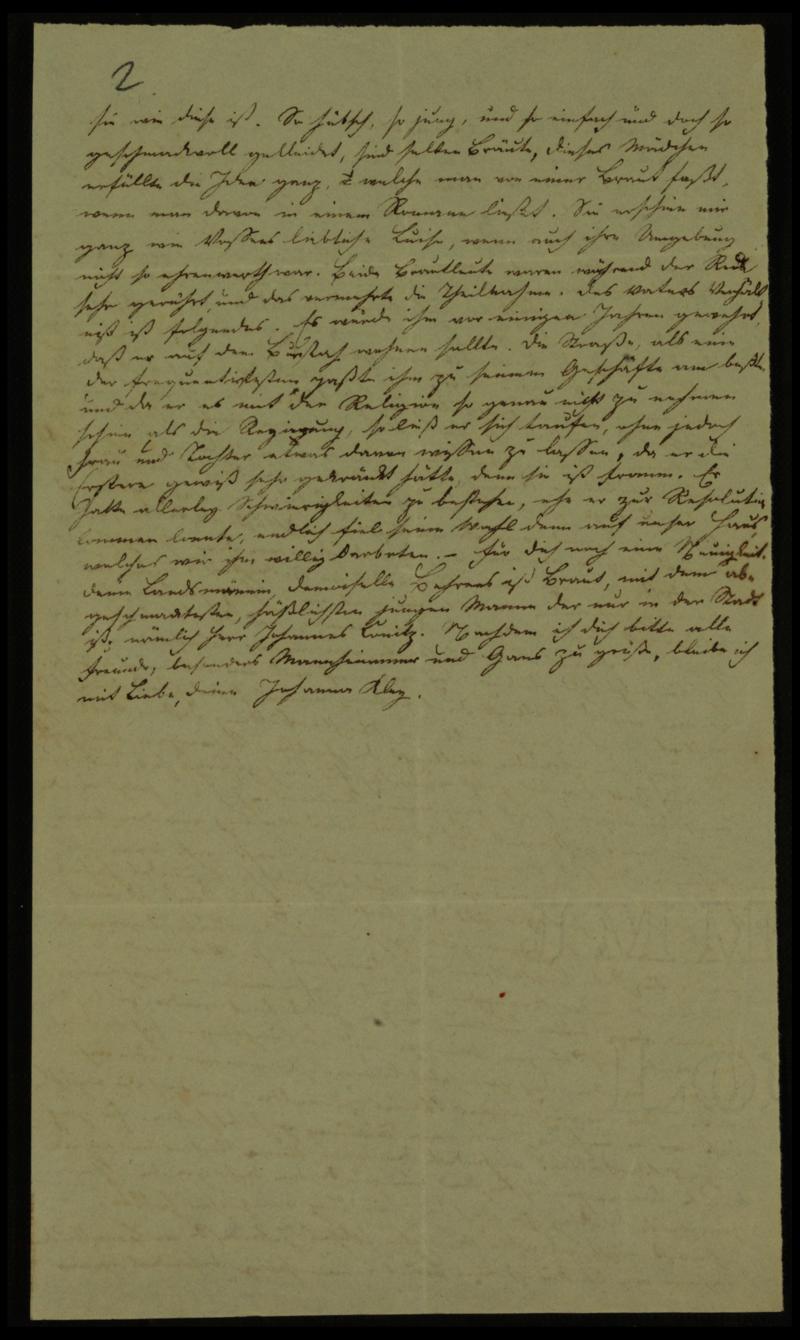 2
sie wie diese ist. So hübsch, so jung, und so einfach und doch so
geschmackvoll gekleidet, sind selten Bräute, dieses Mädchen
erfüllte die Idee ganz, welche man von einer Braut faßt,
wenn man davon in einem Romane ließt. Sie erschien mir
ganz wie Vossens liebliche Luise, wenn auch ihre Umgebung
nicht so ehrenwerth war. Beide Brautleute waren während der Rede
sehr gerührt, und das vermehrte die Theilnahme. Des Vaters Verhält
niß ist folgendes. Es wurde ihm vor einigen Jahren gewehrt,
daß er auf dem Burstah wohnen sollte. Die Straße, als eine
der frequentirtesten paßte ihm zu seinem Geschäfte am besten
und da er es mit der Religion so genau nicht zu nehmen
schien als die Regierung, so ließ er sich taufen, ohne jedoch
Frau und Tochter etwas davon wissen zu lassen, da er die
Erstere gewiß sehr gekränkt hätte, denn sie ist fromm. Er
hatte allerley Schwierigkeiten zu bestehen, ehe er zur Resolution
kommen konnte, endlich fiel seine Wahl denn auf unser Haus,
welches wir ihm willig darboten. – Für dich noch eine Neuigkeit.
deine Landsmännin, Demoiselle Behrens ist Braut, mit dem ab-
geschmacktesten, häßlichsten jungen Manne der nur in der Stadt
ist, nämlich Herr Johannes Conitz. Nachdem ich dich bitte alle
Freunde, besonders Mannheimer und Gans zu grüße, bleibe ich
mit Liebe, deine Johanna Kley.